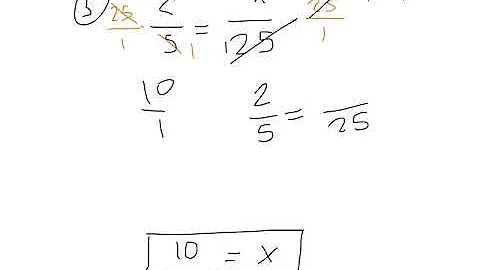 5) 25/1 2/5 1 = x/1 25 25/1
10/1 2/5 = /25
10 = x